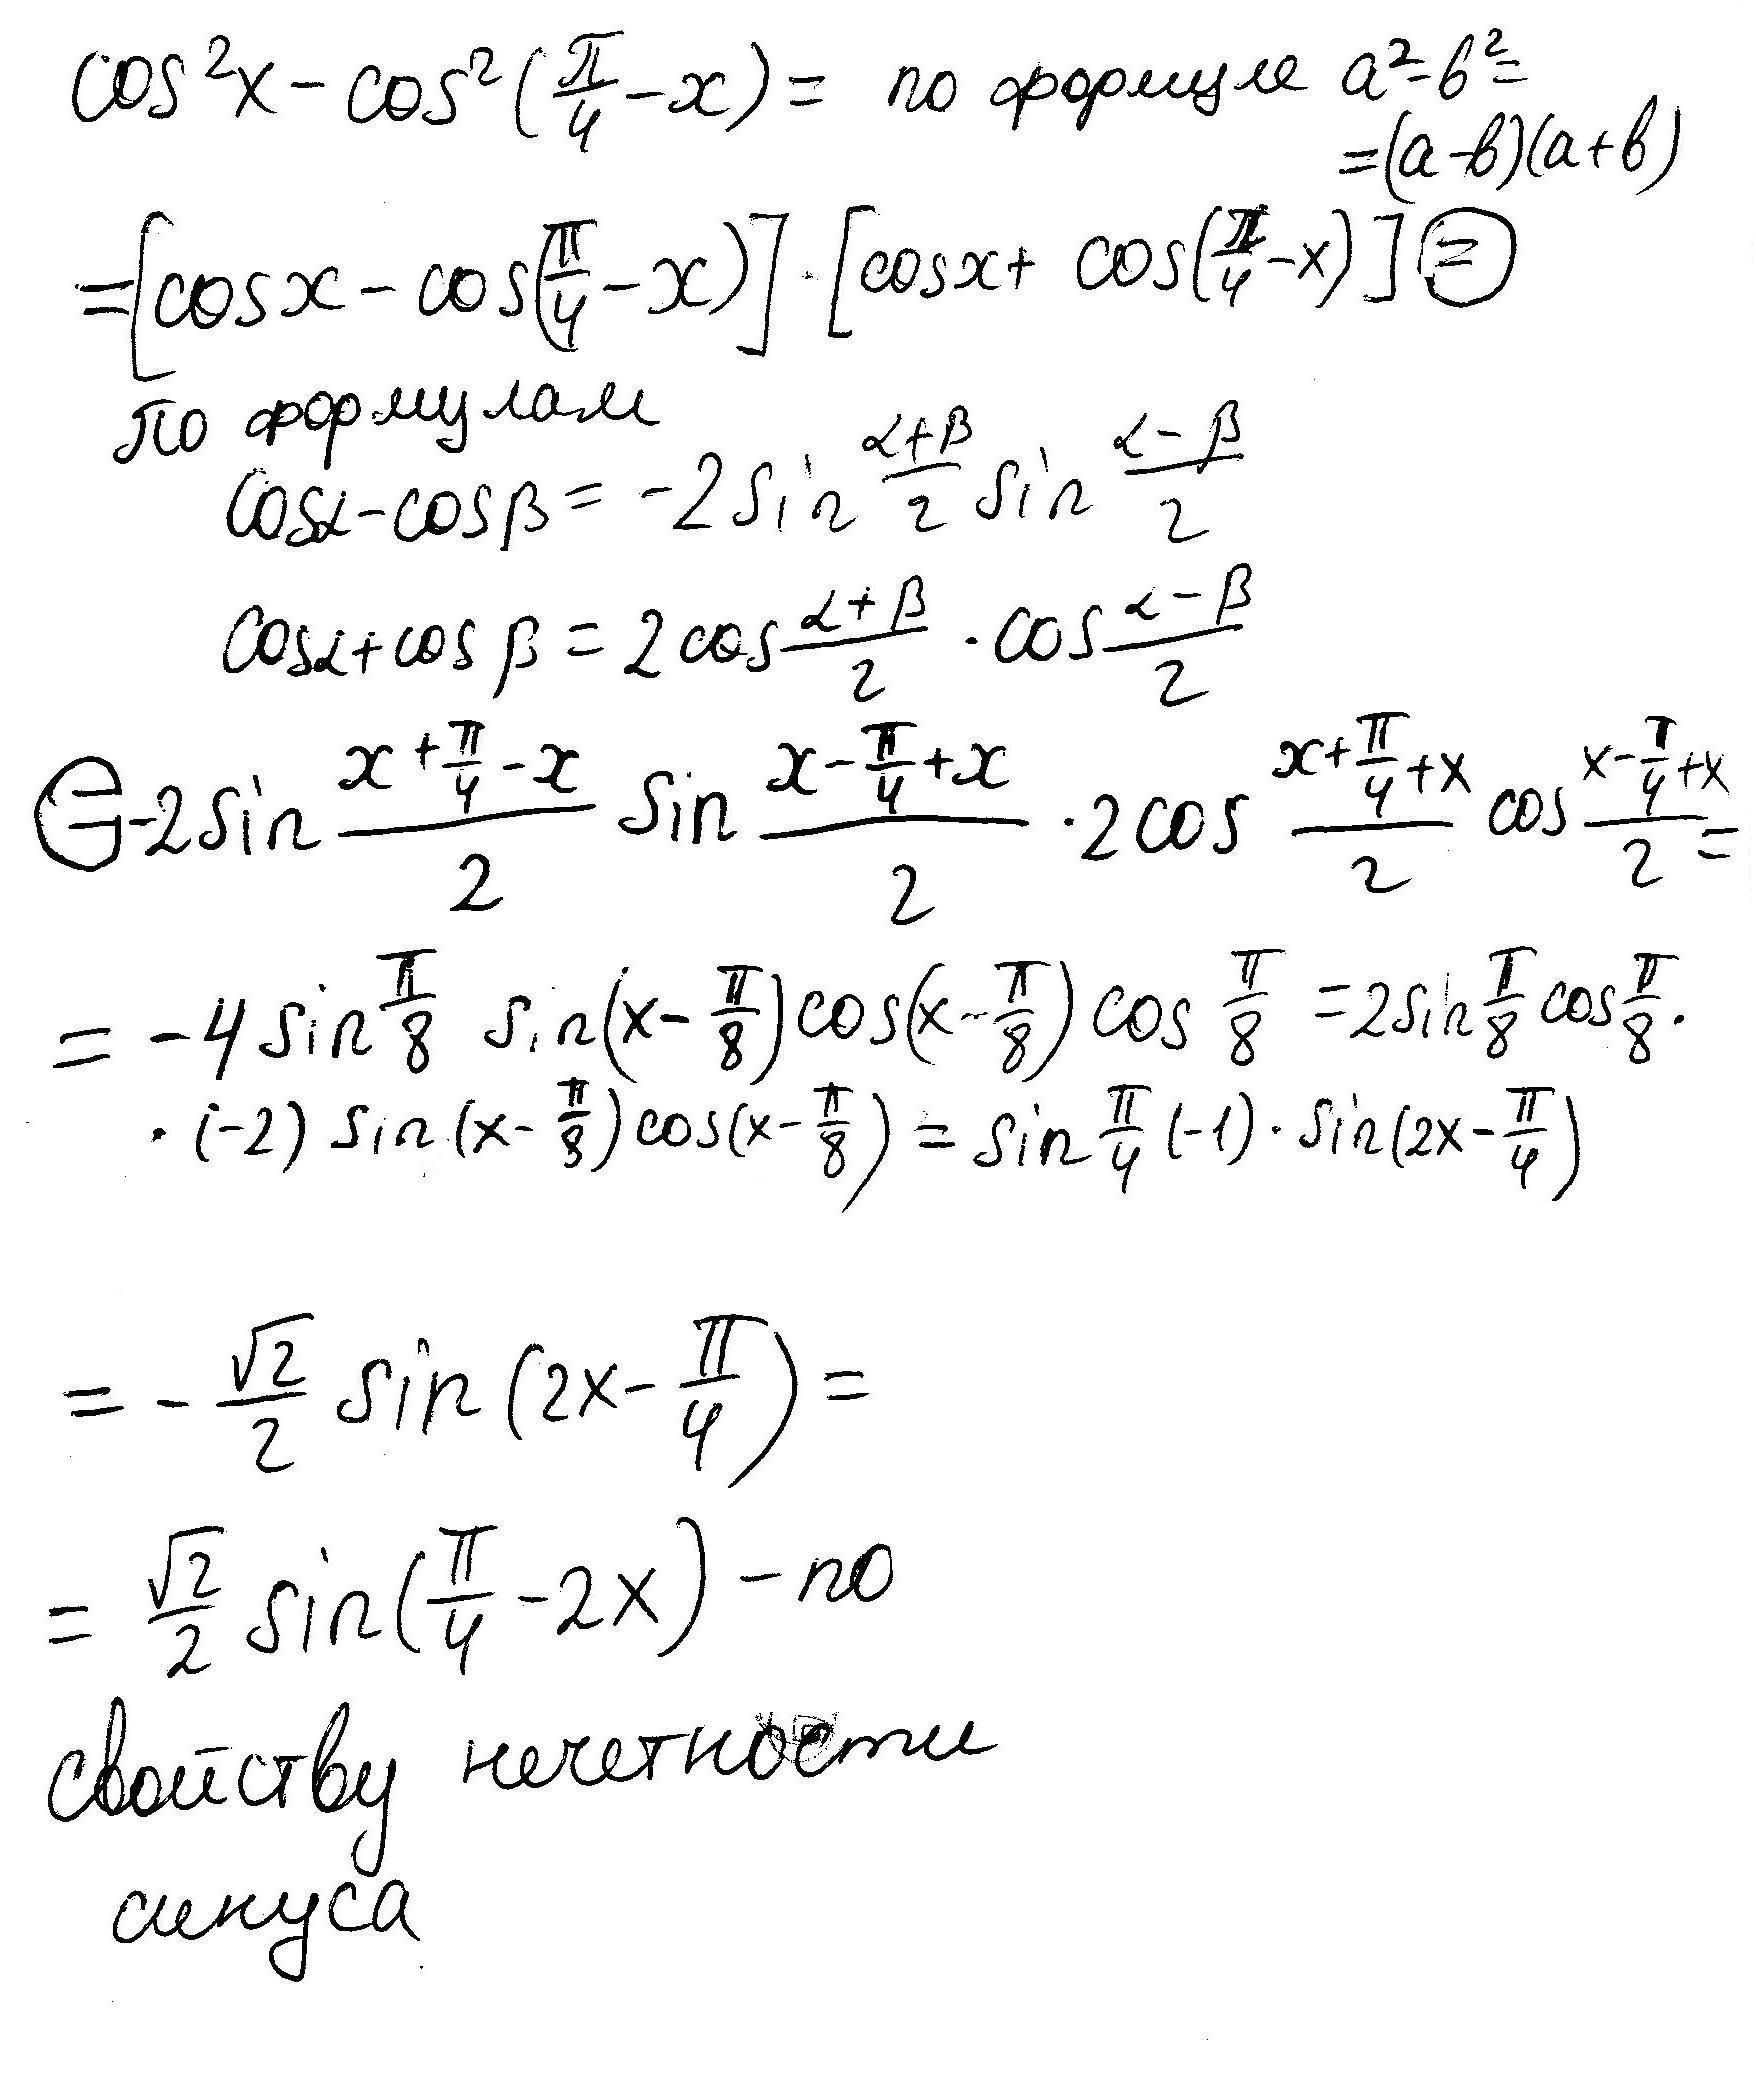 cos²x - cos²(π/4 - x) = по формуле a² - b² =
= (a - b)(a + b)
= [cos x - cos(π/4 - x)] · [cos x + cos(π/4 - x)] =
по формулам
cos α - cos β = -2 sin (α+β)/2 sin (α-β)/2
cos α + cos β = 2 cos (α+β)/2 · cos (α-β)/2
= -2 sin (x + π/4 - x)/2 sin (x - π/4 + x)/2 · 2 cos (x + π/4 + x)/2 cos (x - π/4 + x)/2 =
= -4 sin π/8 sin(x - π/8) cos(x - π/8) cos π/8 = 2 sin π/8 cos π/8 ·
· (-2) sin(x - π/8) cos(x - π/8) = sin π/4 (-1) · sin(2x - π/4)
= - √2/2 sin(2x - π/4) =
= √2/2 sin(π/4 - 2x) - по
свойству нечетности
синуса